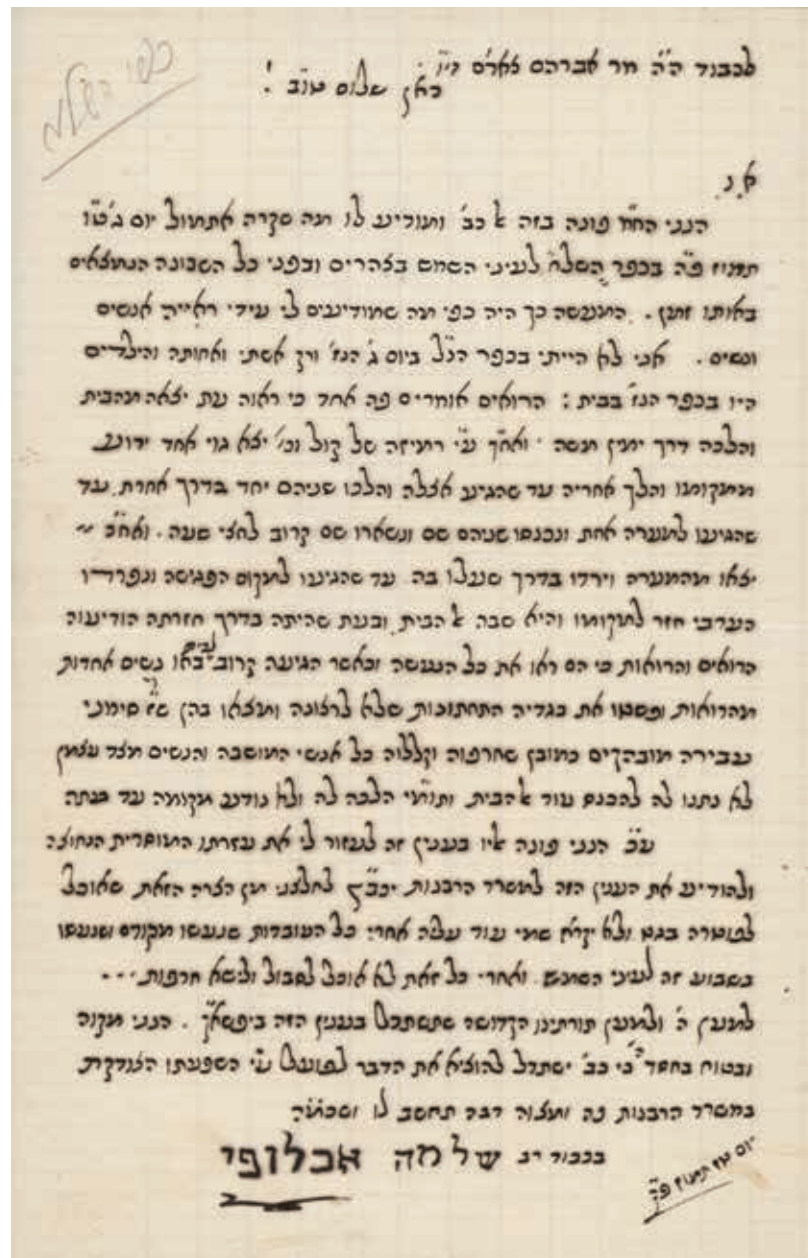 כפר השלח
לכבוד ה״ה מר אברהם אלרם היו
כאן שלום וטוב !
א.נ.
הנני הח״מ פונה בזה א כב׳ ומודיע לו מה שקרה אתמול יום ג׳ ט״ו
תמוז פ״ה בכפר השלח לעיני השמש בצהרים ובפני כל השכונה הנמצאים
באותו זמן. המעשה כך היה כפי מה שמודיעים לי עידי ראייה אנשים
ונשים. אני לא הייתי בכפר הנ״ל ביום ג׳ הנז׳ ורק אשתי ואחותה והילדים
היו בכפר הנז׳ בבית : הרואים אומרים פה אחד כי ראוה עת יצאה מהבית
והלכה דרך ימין משה. ואח״כ ע״י רמיזה של קול וכו׳ יצא גוי אחד ידוע
ממקומו והלך אחריה עד שהגיע אצלה והלכו שניהם יחד בדרך אחרת עד
שהגיעו למערה אחת ונכנסו שניהם שם ונשארו שם קרוב לחצי שעה. ואח״כ
יצאו מהמערה וירדו בדרך שעלו בה עד שהגיעו למקום הפגישה ונפרדו
הערבי חזר למקומו והיא שבה א הבית ובעת שהיתה בדרך חזרתה הודיעוה
הרואים והרואות כי הם ראו את כל הנעשה וכאשר הגיעה קרוב לבית באו נשים אחדות
מהרואות ופשטו את בגדיה התחתונות שלא לרצונה ומצאו בהן סימני
עבירה מובהקים כמובן שחרפוה וקללוה כל אנשי המושבה והנשים מצד עצמן
לא נתנו לה להכנס עוד אהבית, ומו״מי הלכה לה ולא נודע מקומה עד כתה
ע״כ הנני פונה איו בענין זה לעזור לי את עזרתו המוסרית הנחוצה
ולהודיע את הענין הזה למשרד הרבנות יכב״ץ לחלצני מן הצרה הזאת, שאוכל
לפוטרה בגט ולא יקרא שמי עוד עליה אחרי כל העובדות שנעשו מקודם ושנעשו
בשבוע זה לעיני השמש. ואחרי כל זאת לא אוכל לסבול ולשא חרפות...
למען ה׳ ולמען תורתינו הקדושה שתשתדל בענין הזה ביפשא״ך. הנני מקוה
ובטוח בחסד ה׳ כי כב׳ ישתדל להוציא את הדבר לפועל ע״י השפעתו הצודקת
במשרד הרבנות פה ומצוה רבה תחשב לו ושכמ״ה
בכבוד רב שלמה אכלופי
יום טז תמוז פ״ה